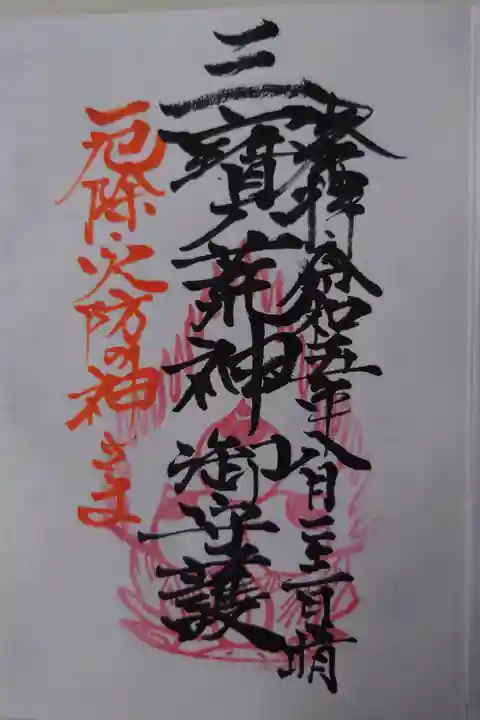 奉拝 令和五年八月三日晴
三寳荒神 御守護
厄除・火防の神さま